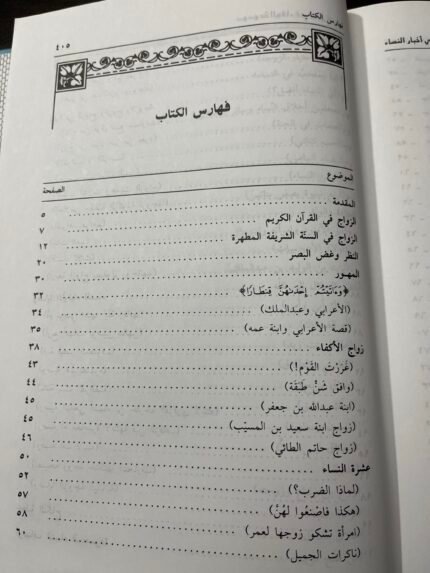 فهارس الكتاب
٤٠٥
في أخبار النساء
فهارس الكتاب
الموضوع الصفحة
المقدمة ٥
الزواج في القرآن الكريم ٧
الزواج في السنّة الشريفة المطهرة ١٢
النظر وغض البصر ٢٠
المهور ٣٠
﴿وَءَاتَيْتُمْ إِحْدَىٰهُنَّ قِنطَارًا﴾ ٣٢
(الأعرابي وعبدالملك) ٣٤
(قصة الأعرابي وابنة عمه) ٣٥
زواج الأكفاء ٣٨
(غَرَرْتَ القَوْم!) ٤٣
(وافق شَنٌّ طَبَقَة) ٤٤
(ابنة عبدالله بن جعفر) ٤٥
(زواج ابنة سعيد بن المسيّب) ٤٥
(زواج حاتم الطائي) ٤٦
عشرة النساء ٥٠
(لماذا الضرب؟) ٥٢
(هكذا فاصْنَعُوا لهُنَّ) ٥٧
(امرأة تشكو زوجها لعمر) ٥٨
(ناكرات الجميل) ٦٠